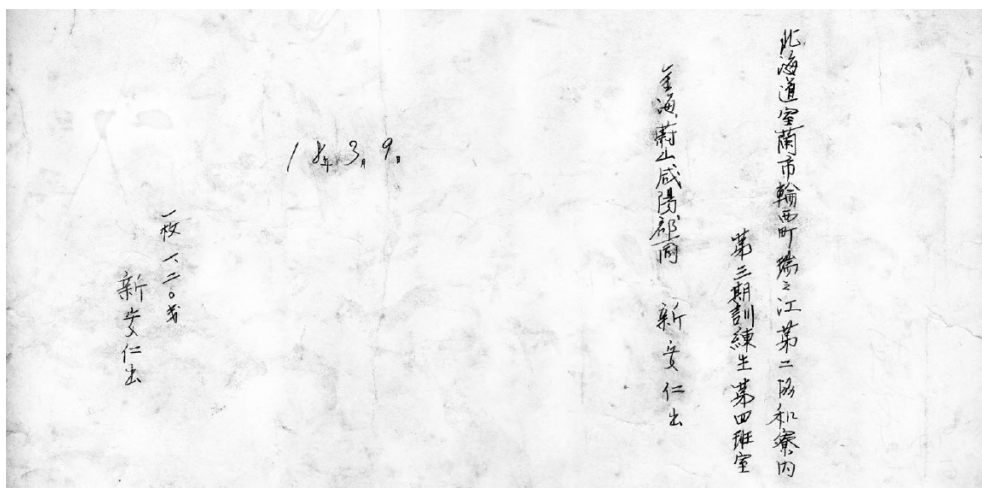 北海道室蘭市輪西町瑞之江第二協和寮内
第三期訓練生第四班室
金海蔚山咸陽郡面 新安仁出
18年3月9日
一枚 一、二〇
新安仁出